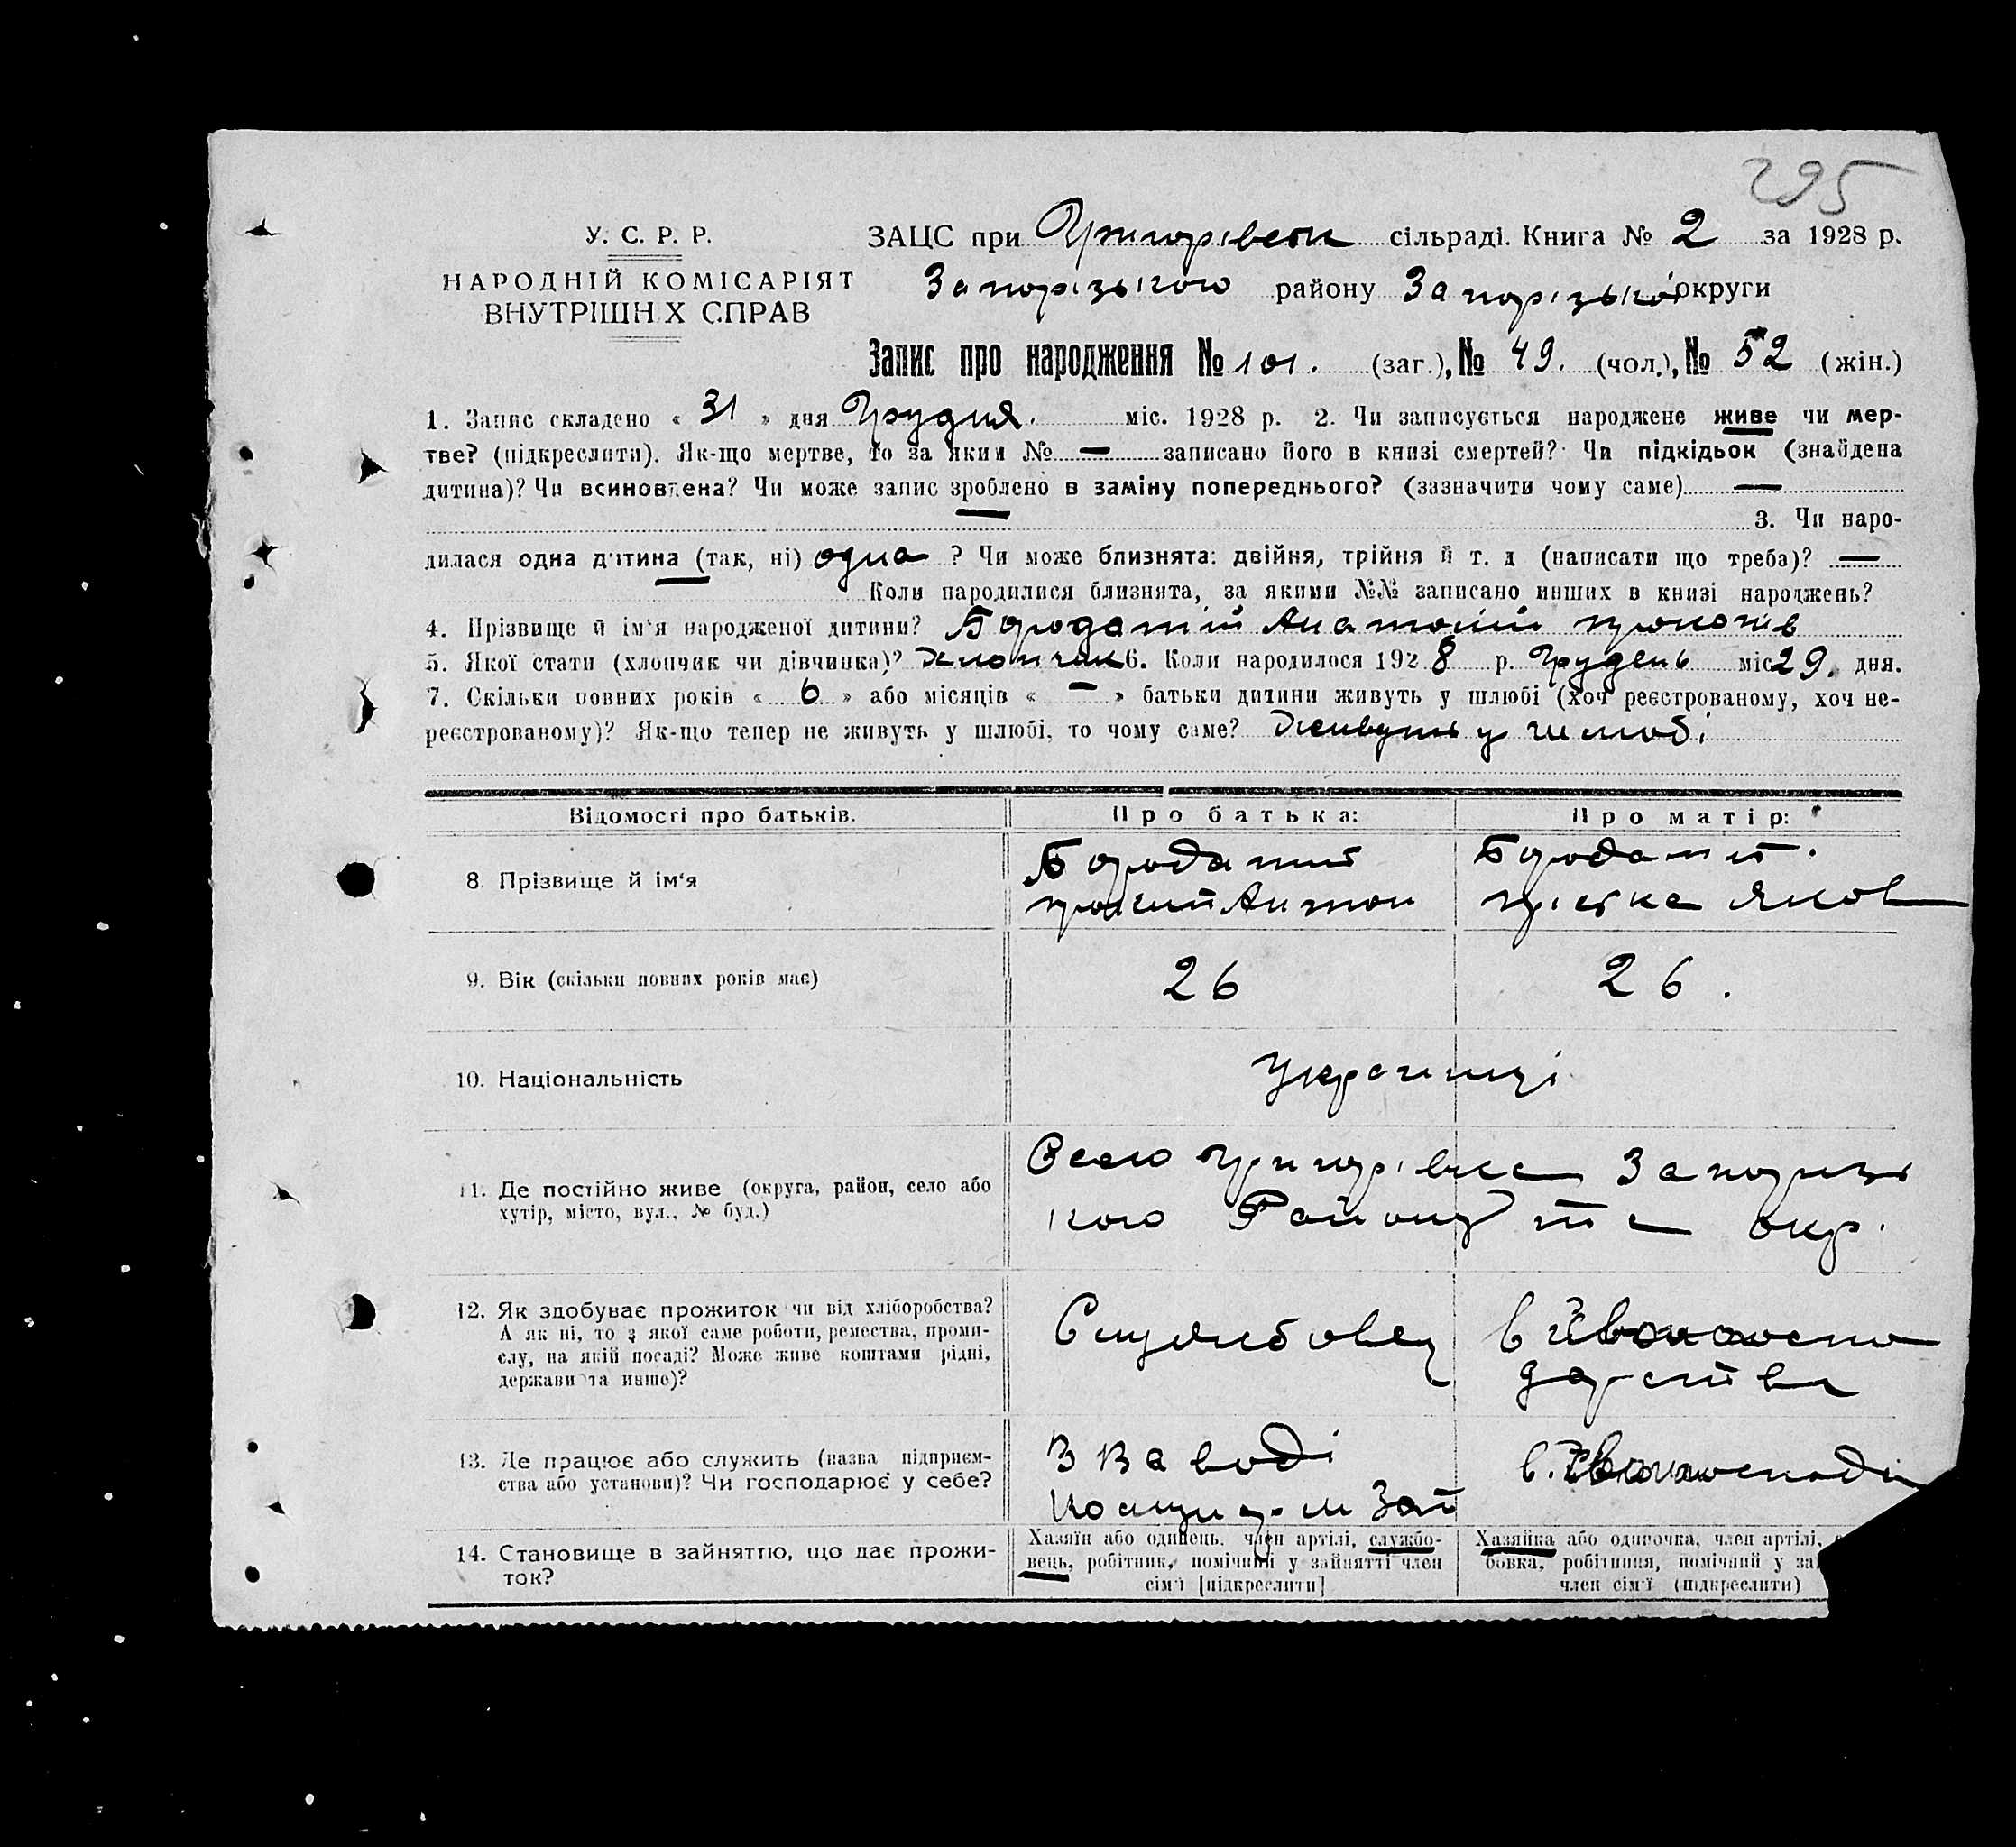 295
У. С. Р. Р.
НАРОДНІЙ КОМІСАРІЯТ
ВНУТРІШНІХ СПРАВ
ЗАЦС при сільраді. Книга № 2 за 1928 р.
Запорізького району Запорізької округи
Запис про народження № 101. (заг.), № 49. (чол.), № 52 (жін.)
1. Запис складено « 31 » дня Грудня. міс. 1928 р. 2. Чи записується народжене живе чи мер-
тве? (підкреслити). Як-що мертве, то за яким № — записано його в книзі смертей? Чи підкідьок (знайдена
дитина)? Чи всиновлена? Чи може запис зроблено в заміну попереднього? (зазначити чому саме) —
3. Чи наро-
дилася одна дитина (так, ні) одна ? Чи може близнята: двійня, трійня й т. д (написати що треба)? —
Коли народилися близнята, за якими №№ записано инших в книзі народжень?
4. Прізвище й ім‘я народженої дитини? Бородатий Анатолій
5. Якої стати (хлопчик чи дівчинка)? хлопчик 6. Коли народилося 1928 р. Грудень міс 29. дня.
7. Скільки повних років « 6 » або місяців « — » батьки дитини живуть у шлюбі (хоч реєстрованому, хоч не-
реєстрованому)? Як-що тепер не живуть у шлюбі, то чому саме? Живуть у шлюбі
Відомості про батьків.
Про батька:
Про матір:
8. Прізвище й ім‘я
Бородатий
Антон
Бородатий.
Яков
9. Вік (скільки повних років має)
26
26.
10. Національність
Українці
11. Де постійно живе (округа, район, село або
хутір, місто, вул., № буд.)
Село Григорівка Запоризь
кого Району та окр.
12. Як здобуває прожиток чи від хліборобства?
А як ні, то з якої саме роботи, ремества, проми-
слу, на якій посаді? Може живе коштами рідні,
держави та инше)?
Службовец
13. Де працює або служить (назва підприєм-
ства або установи)? Чи господарює у себе?
14. Становище в зайняттю, що дає прожи-
ток?
Хазяїн або одинець, член артілі, службо-
вець, робітник, помічний у зайнятті член
сім‘ї [підкреслити]
Хазяйка або одиночка, член артілі,
бовка, робітниця, помічний у за
член сім‘ї (підкреслити)